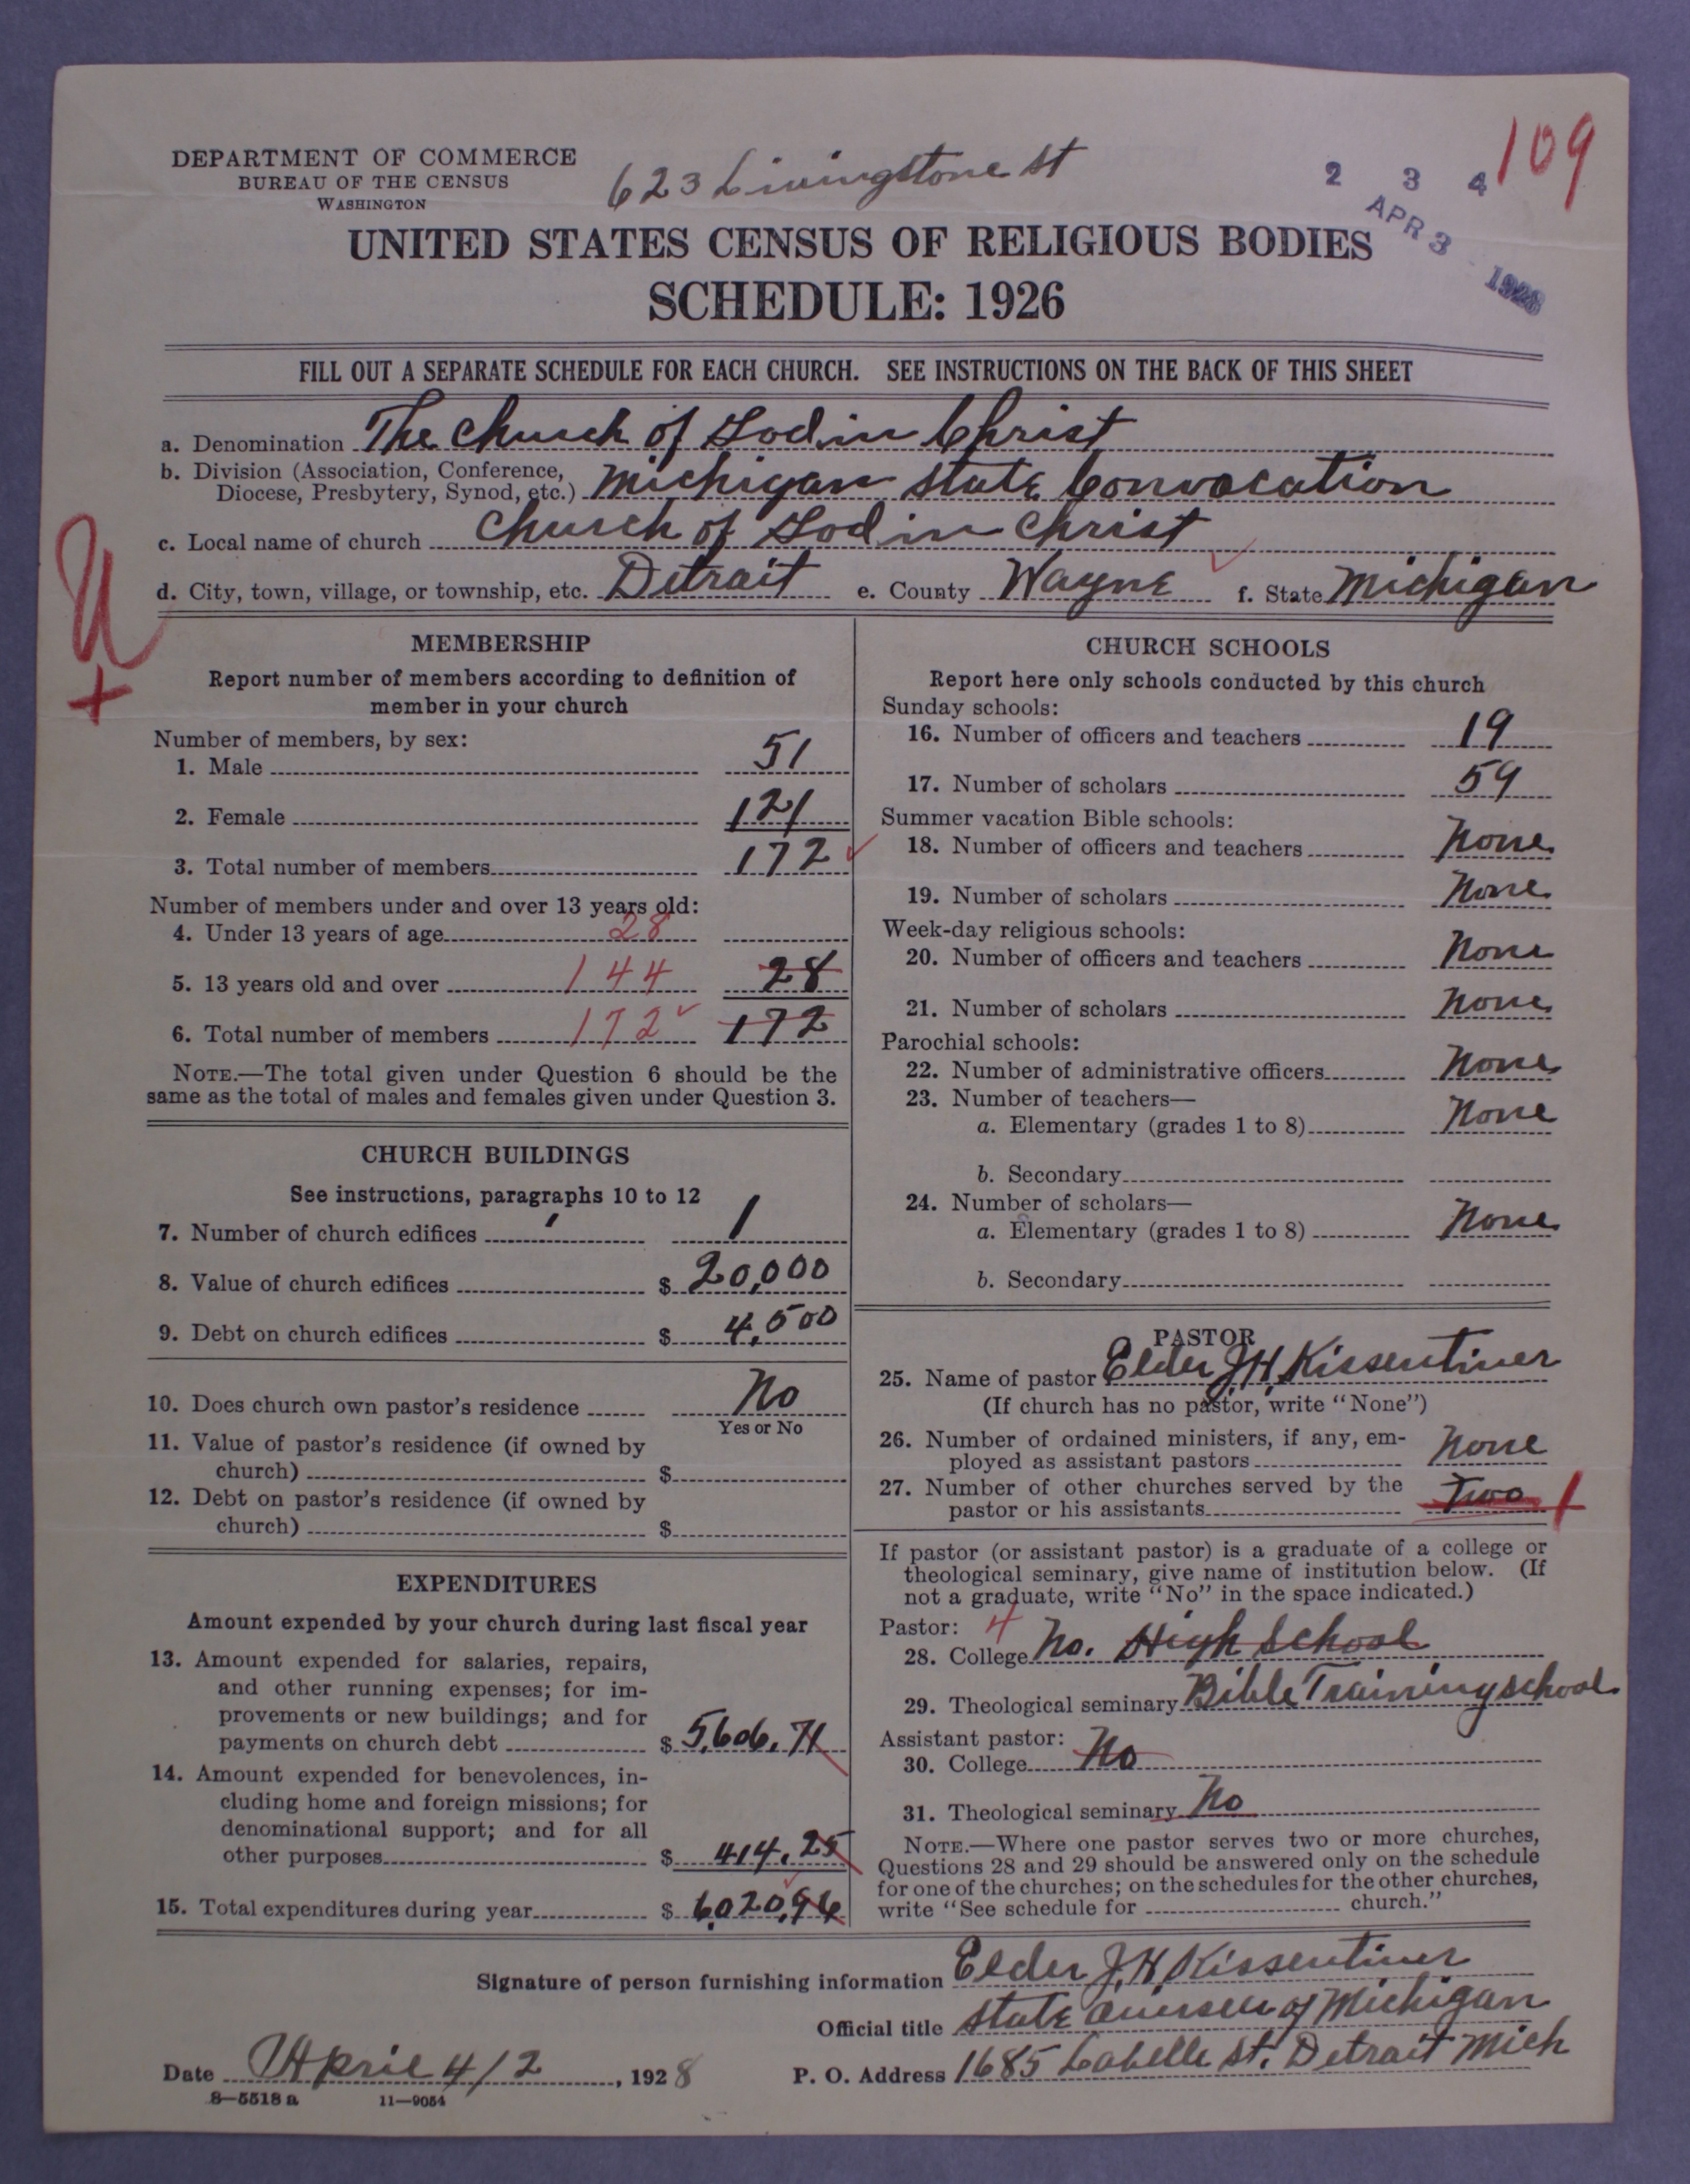 109
2 3 4
APR 3 1928
DEPARTMENT OF COMMERCE
BUREAU OF THE CENSUS
WASHINGTON
623 Livingstone St
UNITED STATES CENSUS OF RELIGIOUS BODIES
SCHEDULE: 1926
FILL OUT A SEPARATE SCHEDULE FOR EACH CHURCH. SEE INSTRUCTIONS ON THE BACK OF THIS SHEET
a. Denomination The Church of God in Christ
b. Division (Association, Conference,
Diocese, Presbytery, Synod, etc.) Michigan State Convocation
c. Local name of church Church of God in Christ
d. City, town, village, or township, etc. Detroit e. County Wayne f. State Michigan
MEMBERSHIP
Report number of members according to definition of
member in your church
Number of members, by sex:
1. Male 51
2. Female 121
3. Total number of members 172
Number of members under and over 13 years old:
4. Under 13 years of age 28
5. 13 years old and over 144 28
6. Total number of members 172 172
NOTE.—The total given under Question 6 should be the
same as the total of males and females given under Question 3.
CHURCH BUILDINGS
See instructions, paragraphs 10 to 12
7. Number of church edifices 1
8. Value of church edifices $ 20,000
9. Debt on church edifices $ 4,500
10. Does church own pastor's residence No
Yes or No
11. Value of pastor's residence (if owned by
church) $
12. Debt on pastor's residence (if owned by
church) $
EXPENDITURES
Amount expended by your church during last fiscal year
13. Amount expended for salaries, repairs,
and other running expenses; for im-
provements or new buildings; and for
payments on church debt $ 5,606.71
14. Amount expended for benevolences, in-
cluding home and foreign missions; for
denominational support; and for all
other purposes $ 414.25
15. Total expenditures during year $ 6,020,96
CHURCH SCHOOLS
Report here only schools conducted by this church
Sunday schools:
16. Number of officers and teachers 19
17. Number of scholars 59
Summer vacation Bible schools:
18. Number of officers and teachers None
19. Number of scholars None
Week-day religious schools:
20. Number of officers and teachers None
21. Number of scholars None
Parochial schools:
22. Number of administrative officers None
23. Number of teachers—
a. Elementary (grades 1 to 8) None
b. Secondary
24. Number of scholars—
a. Elementary (grades 1 to 8) None
b. Secondary
PASTOR
25. Name of pastor Elder J.H. Kissentiner
(If church has no pastor, write "None")
26. Number of ordained ministers, if any, em-
ployed as assistant pastors None
27. Number of other churches served by the
pastor or his assistants Two 1
If pastor (or assistant pastor) is a graduate of a college or
theological seminary, give name of institution below. (If
not a graduate, write "No" in the space indicated.)
Pastor: 4
28. College No. High School
29. Theological seminary Bible Training school
Assistant pastor:
30. College No
31. Theological seminary No
NOTE.—Where one pastor serves two or more churches,
Questions 28 and 29 should be answered only on the schedule
for one of the churches; on the schedules for the other churches,
write "See schedule for church."
Signature of person furnishing information Elder J.H. Kissentiner
Official title State Overseer of Michigan
Date April 4/2, 1928 P. O. Address 1685 Labelle St. Detroit Mich
8—5518 a 11—9054